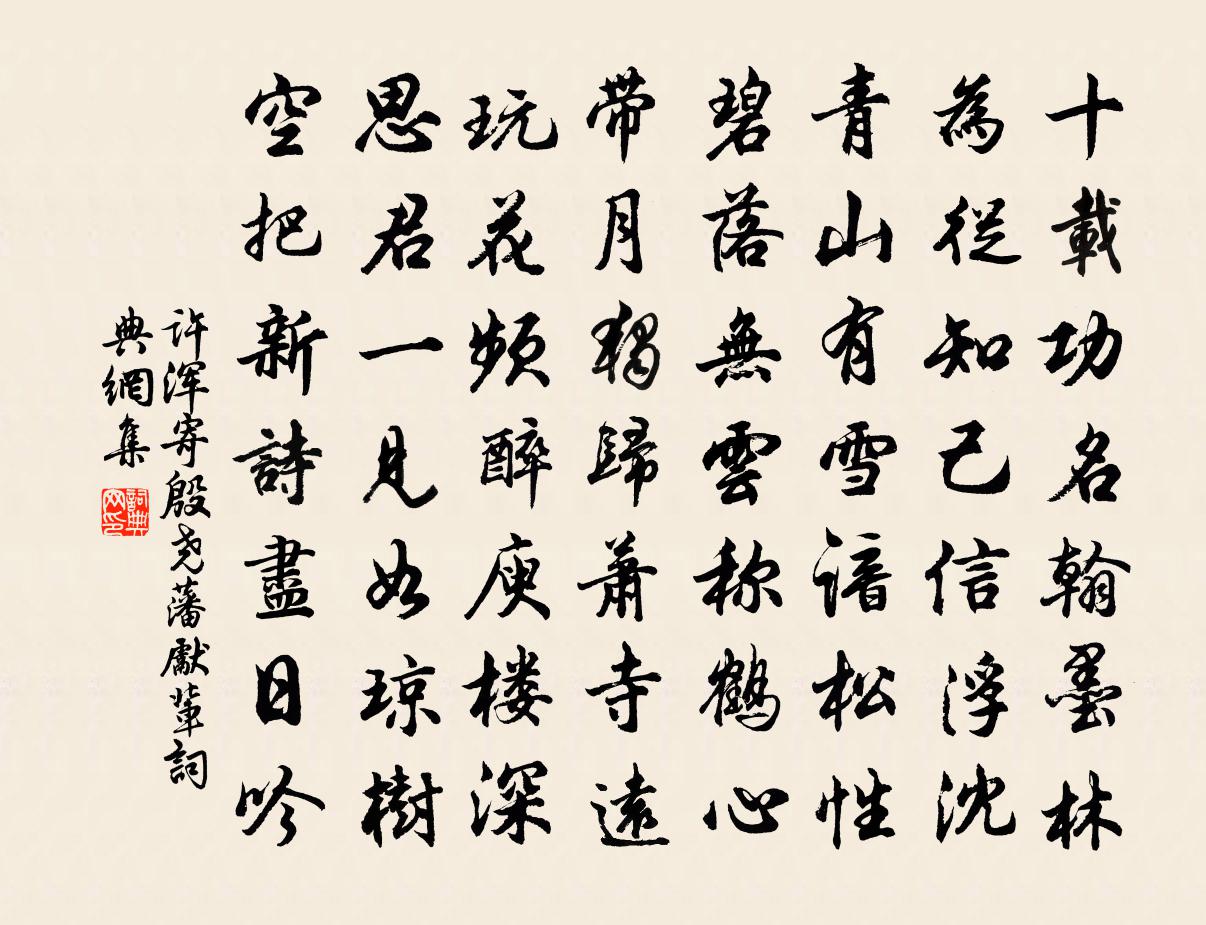 十載功名翰墨林
為從知己信浮沈
青山有雪谙松性
碧落無雲称鶴心
带月獨歸蕭寺遠
玩花頻醉庾楼深
思君一見如琼樹
空把新詩盡日吟
许浑寄殷尧藩獻輩詞
典網集
詞典网印